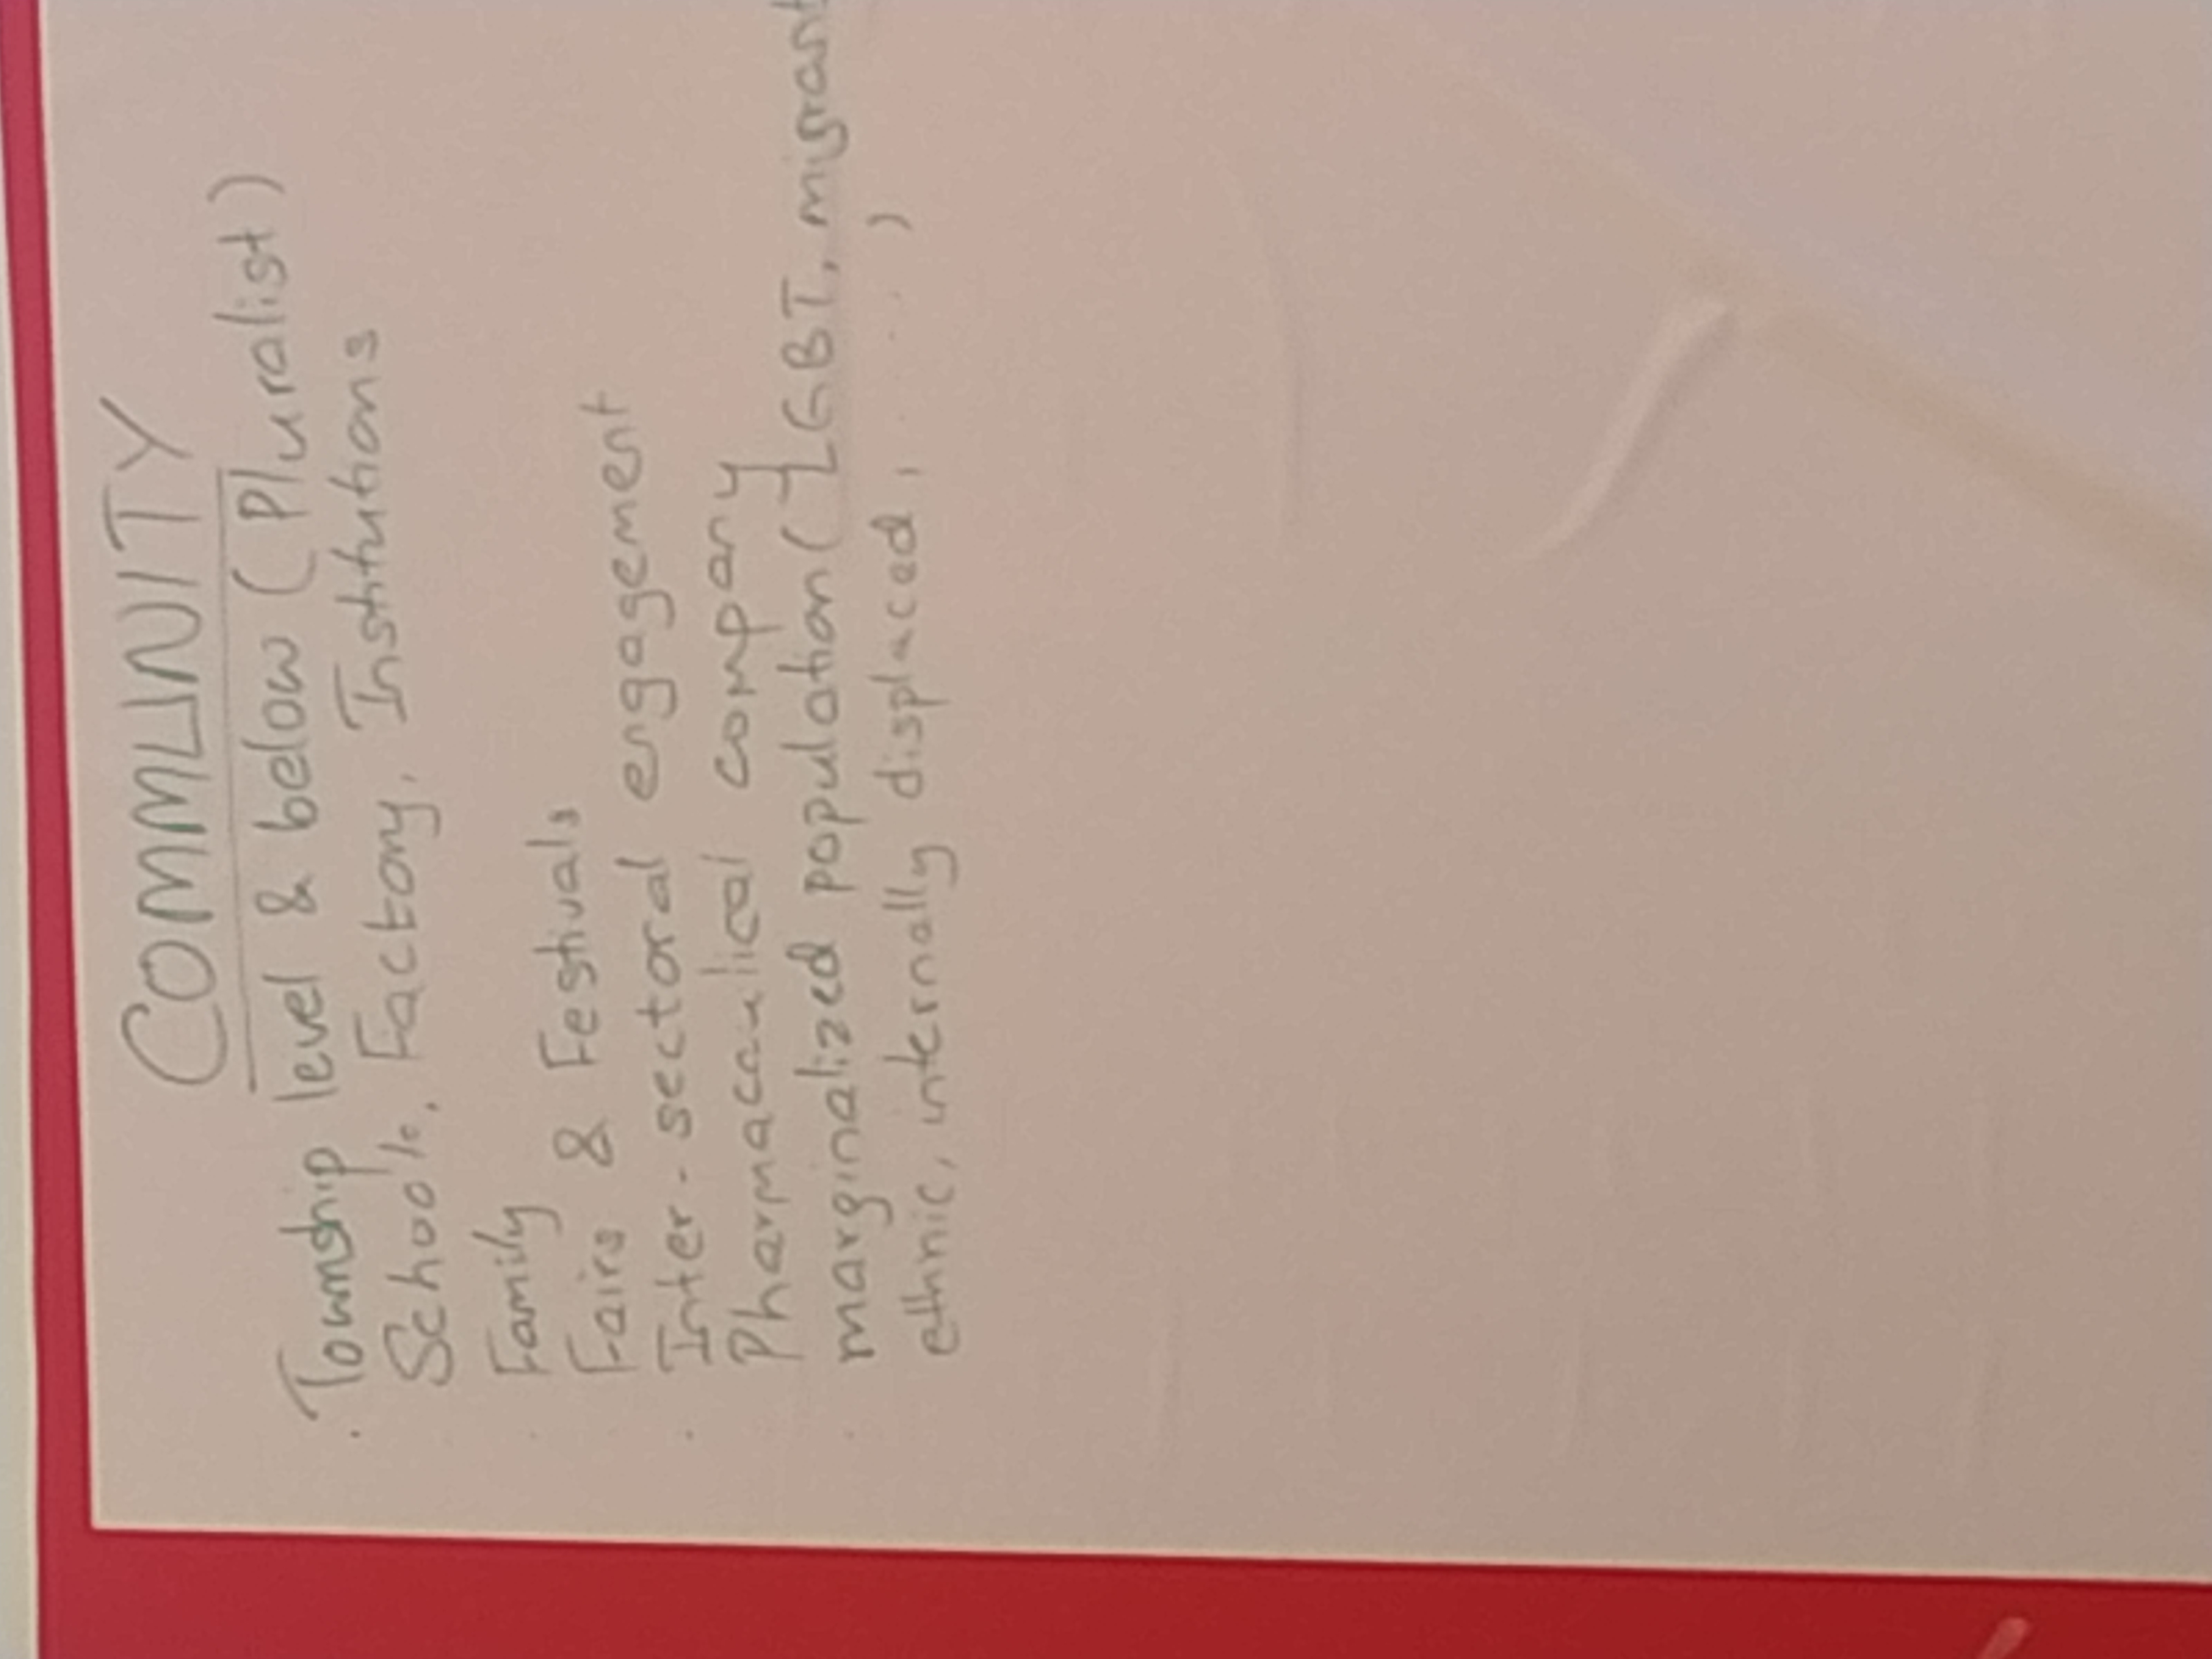 COMMUNITY
. Township level & below (Pluralist)
Schools, Factory, Institutions
Family
Fairs & Festivals
. Inter-sectoral engagement
Pharmacautical company
. marginalized population (LGBT, migrant
ethnic, internally displaced, ..... )